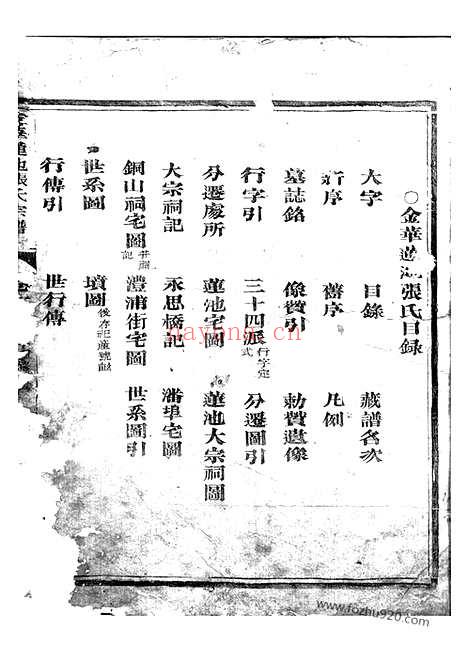 ○金華蓮池張氏目録
大字　目錄　藏譜名次
新序　舊序　凡例
墓誌銘　像贊引　勅贊遺像
行字引　三十四派行字定式　分遷圖引
分遷處所　蓮池宅圖　蓮池大宗祠圖
大宗祠記　永思橋記　潘埠宅圖
銅山祠宅圖　澧浦街宅圖　世系圖引
世系圖　墳圖
行傳引　世行傳
金華蓮池張氏宗譜
dayong.cn
www.fozhu920.com